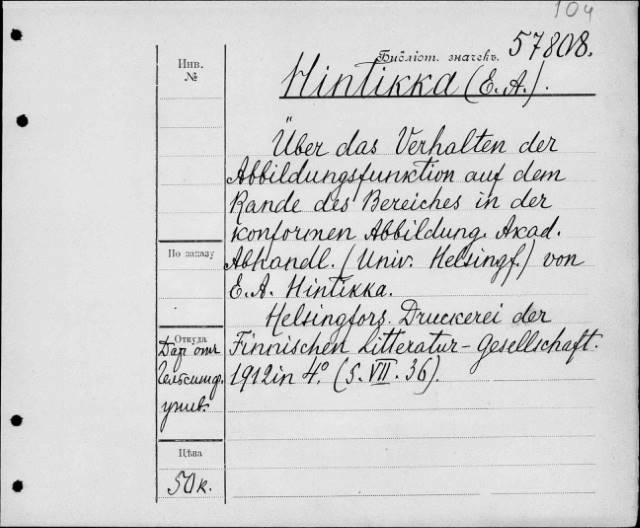 104
Библіот. значекъ. 57808.
Инв.
№
Hintikka (E. A.).
Über das Verhalten der
Abbildungsfunktion auf dem
Rande des Bereiches in der
konformen Abbildung. Akad.
Abhandl. (Univ. Helsingf.) von
E. A. Hintikka.
Helsingfors. Druckerei der
Finnischen Litteratur-Gesellschaft.
1912 in 4°. (S. VII. 36).
По заказу
Откуда
Дар от
Гельсингф.
унив.
Цѣна
50 к.